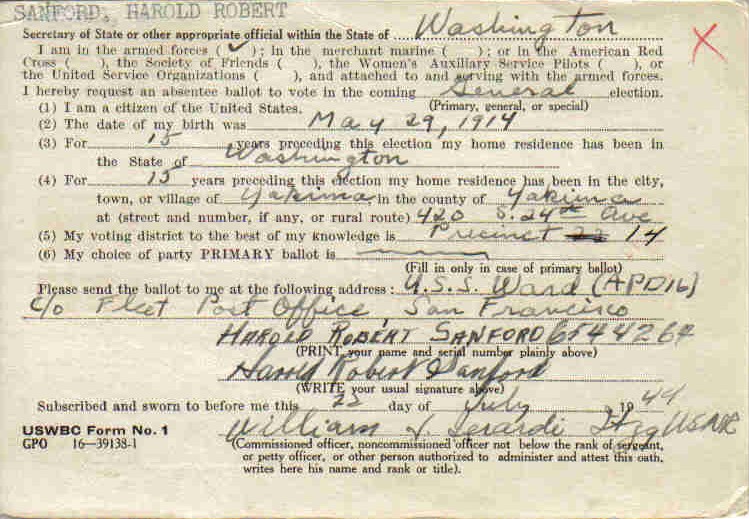 SANFORD, HAROLD ROBERT
Secretary of State or other appropriate official within the State of Washington
I am in the armed forces ( ✓ ); in the merchant marine ( ); or in the American Red
Cross ( ), the Society of Friends ( ), the Women's Auxiliary Service Pilots ( ), or
the United Service Organizations ( ), and attached to and serving with the armed forces.
I hereby request an absentee ballot to vote in the coming General election.
(Primary, general, or special)
(1) I am a citizen of the United States.
(2) The date of my birth was May 29, 1914
(3) For 15 years preceding this election my home residence has been in
the State of Washington
(4) For 15 years preceding this election my home residence has been in the city,
town, or village of Yakima in the county of Yakima
at (street and number, if any, or rural route) 420 S. 24th Ave
(5) My voting district to the best of my knowledge is Precinct 14
(6) My choice of party PRIMARY ballot is
(Fill in only in case of primary ballot)
Please send the ballot to me at the following address: U.S.S. Ward (APD16)
c/o Fleet Post Office, San Francisco
HAROLD ROBERT SANFORD 6544264
(PRINT your name and serial number plainly above)
Harold Robert Sanford
(WRITE your usual signature above)
Subscribed and sworn to before me this 22 day of July, 1944
William J Gerardi Ltjg USNR
USWBC Form No. 1
GPO 16—39138-1
(Commissioned officer, noncommissioned officer not below the rank of sergeant,
or petty officer, or other person authorized to administer and attest this oath,
writes here his name and rank or title).